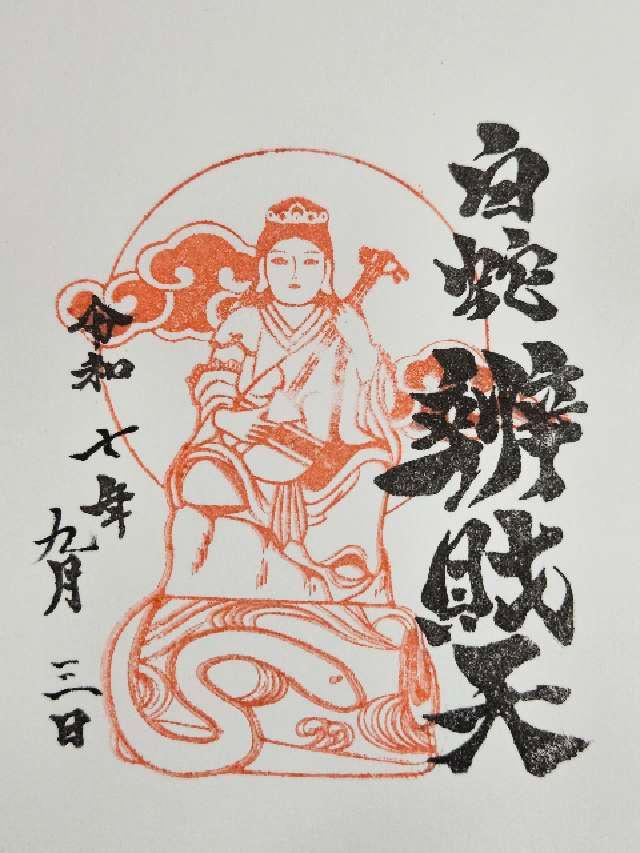 白蛇辨財天
令和七年
九月三日